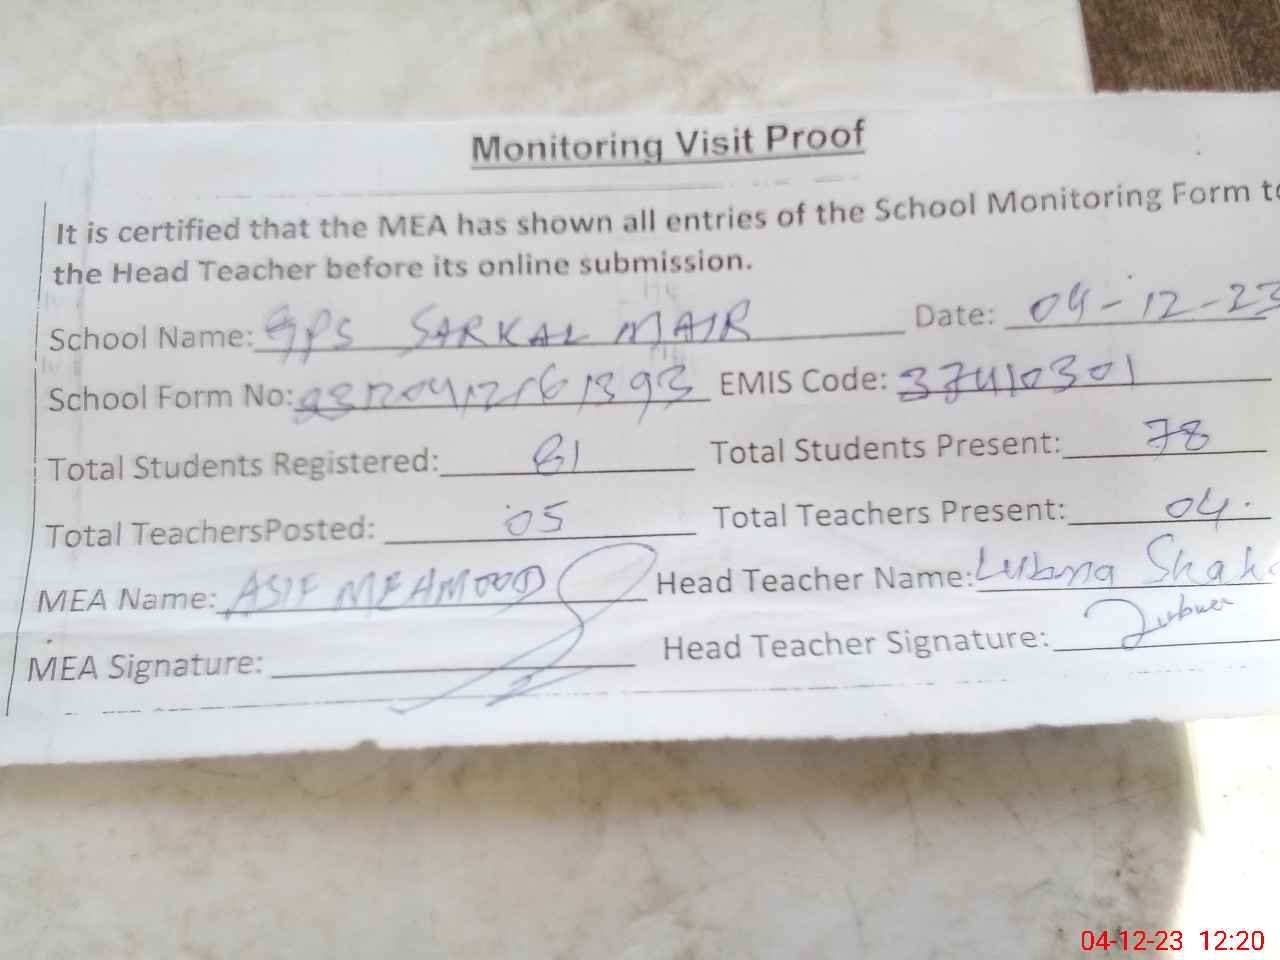 Monitoring Visit Proof
It is certified that the MEA has shown all entries of the School Monitoring Form to
the Head Teacher before its online submission.
School Name: GPS SARKAL MAIR Date: 04-12-23
School Form No: EMIS Code: 37410301
Total Students Registered: 81 Total Students Present: 78
Total TeachersPosted: 05 Total Teachers Present: 04.
MEA Name: ASIF MEHMOOD Head Teacher Name: Lubna
MEA Signature: Head Teacher Signature: Lubna
04-12-23 12:20